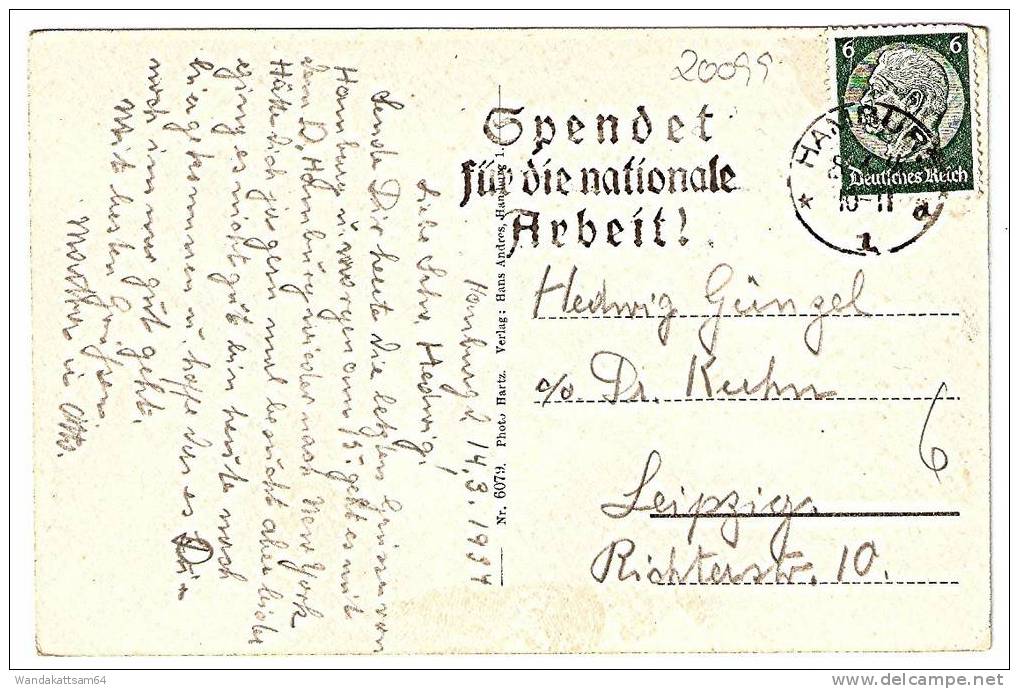 20099
6 6
Deutsches Reich
HAMBURG
10-11
* 1 d
Spendet
für die nationale
Arbeit!
Hedwig Güngel
c/o Dr. Kuhn
Leipzig.
Richterstr. 10.
6
Nr. 6079. Photo Hartz. Verlag: Hans Andres, Hamburg 1.
Hamburg d 14.3.1934
Liebe Schw. Hedwig!
Sende Dir heute die letzten Grüsse von
Hamburg u. morgen am 15. geht es mit
dem D. Hamburg wieder nach New York
Hätte Dich ja gern mal besucht aber leider
ging es nicht gut bin heute noch
hier u. hoffe das es Dir
noch immer gut geht.
Mit besten Grüssen
u. Otto.
Wandakattsam64
delcampe.net